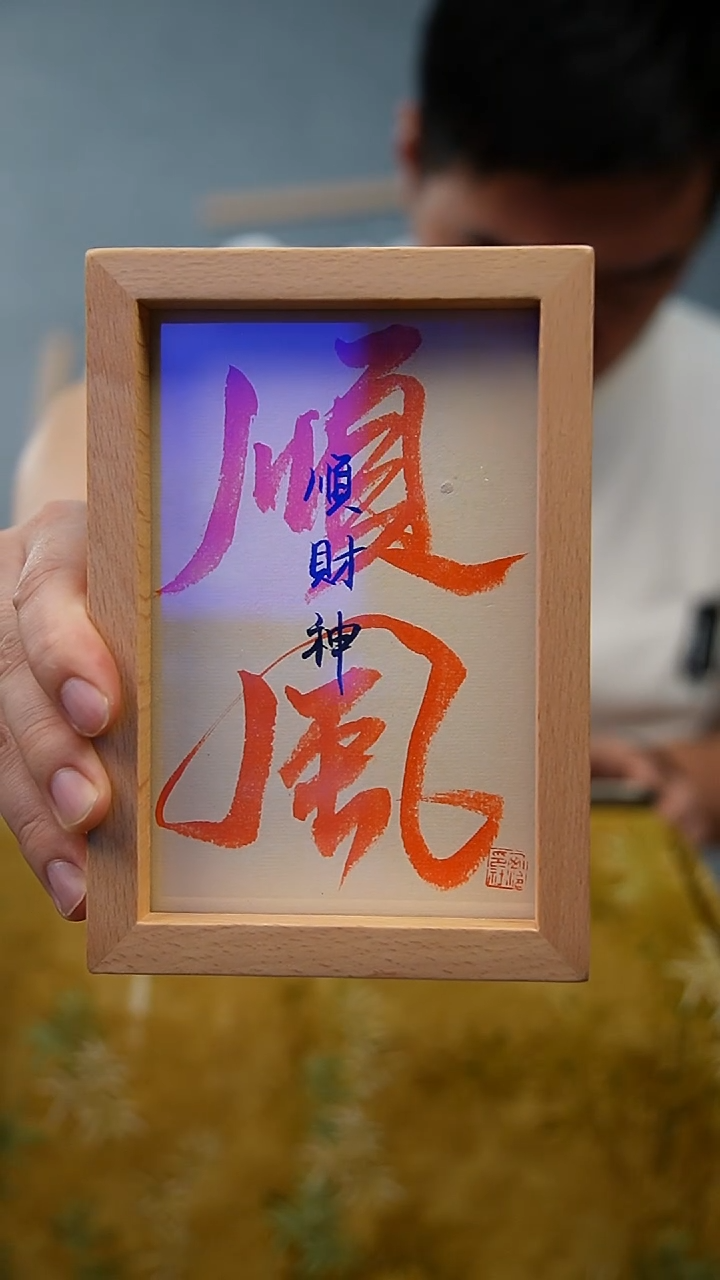 順風
順財神